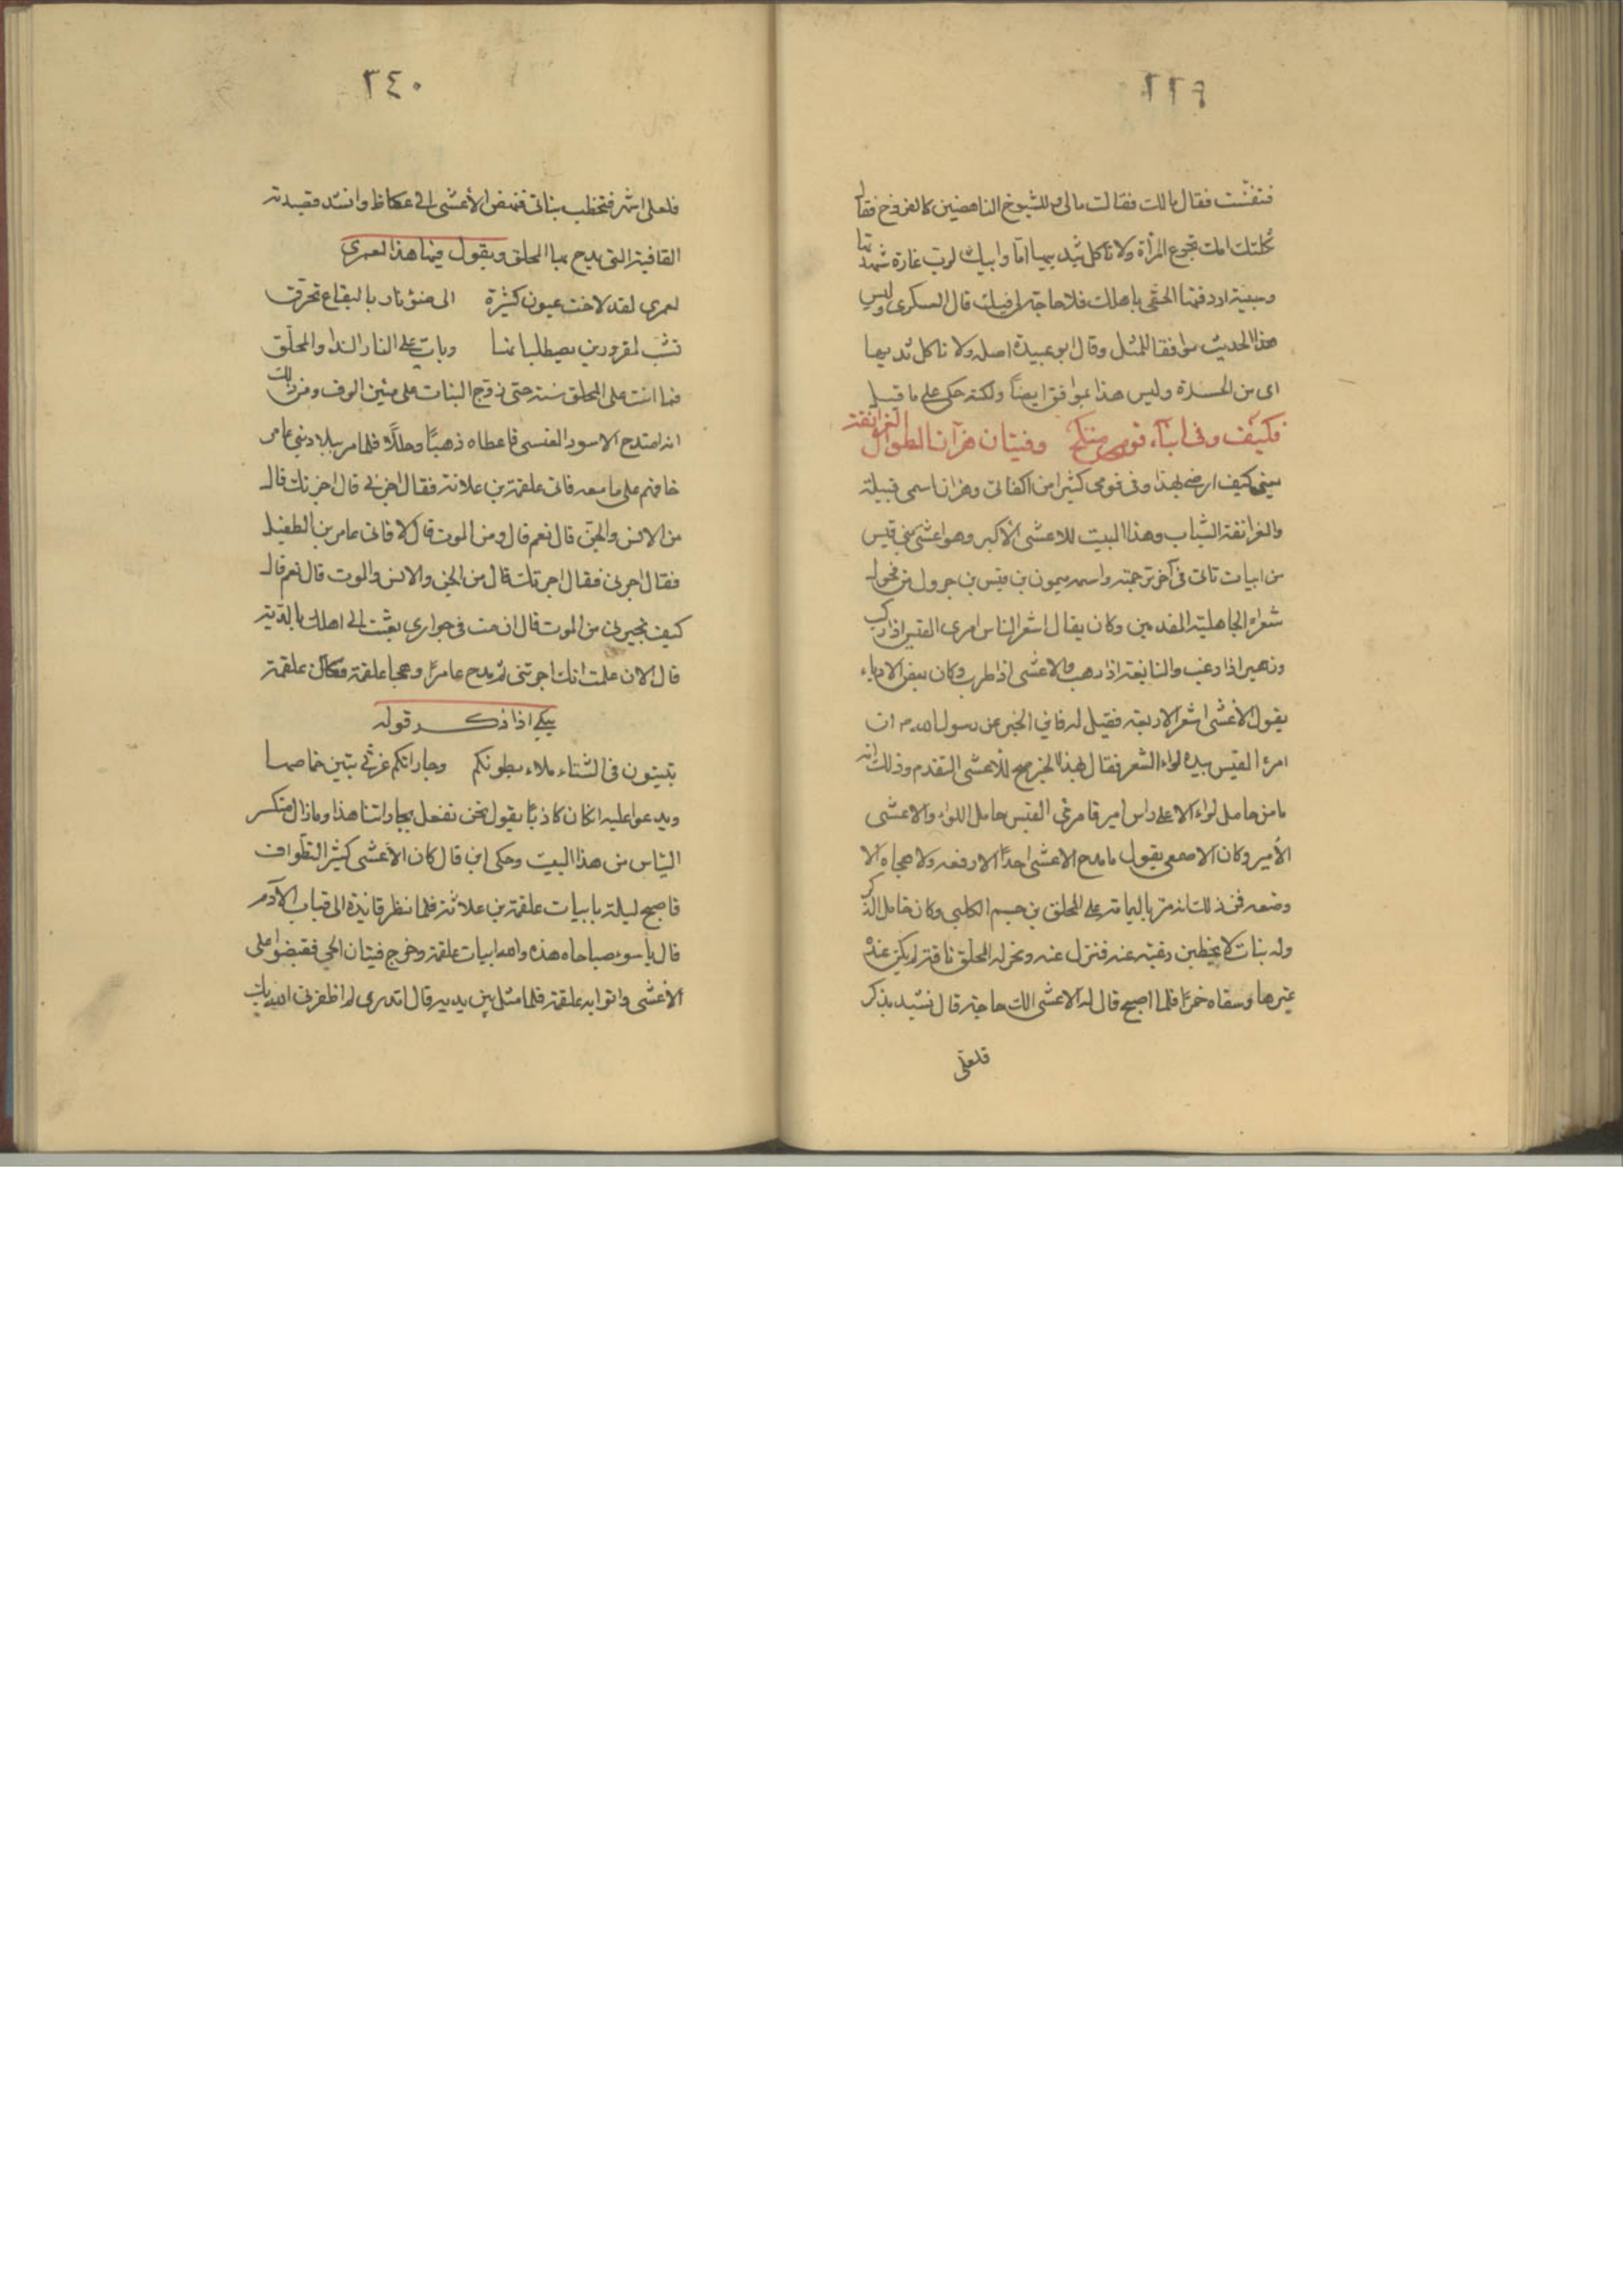 ٢٣٩
فتنفست فقال مالك فقالت مالى وللشيوخ الناهضين كالفروخ فقال
ثكلتك امك تجوع المرأة ولا تأكل بثدييها اما وابيك لرب غارة شهدتها
وسبية اردفتها الحقى باهلك فلا حاجة لى فيك قال العسكرى وليس
هذا الحديث موافقا للمثل وقال ابو عبيدة اصله ولا تاكل ثدييها
اى من الحسرة وليس هذا بموافق ايضاً ولكنه حكى على ما قيل
فكيف وفى ابناء قومى منكح وفتيان هزآن الطوال الغرانقة
يعنى كيف ارضى بهذا وفى قومى كثيرا من اكفائى وهزان اسمى قبيلة
والغرانقة الشباب وهذا البيت للاعشى الاكبر وهو اعشى بنى قيس
من ابيات تاتى فى آخر ترجمته واسمه ميمون بن قيس بن جرول من فحول
شعراء الجاهلية المقدمين وكان يقال اشعر الناس امرى القيس اذا ركب
وزهير اذا رغب والنابغة اذا رهب والاعشى اذا طرب وكان بعض الادباء
يقول الأعشى اشعر الاربعة فقيل له فاين الخبر عن رسول الله م ان
امرء القيس بيده لواء الشعر فقال بهذا الخبر صح للاعشى التقدم وذلك انه
ما من حامل لواء الا على راس امير فامرئ القيس حامل اللواء والاعشى
الأمير وكان الاصمعى يقول ما مدح الاعشى احداً الا رفعه ولا هجاه الا
وضعه فمن ذلك انه مر باليمامة على المحلق بن جسم الكلبى وكان خامل الذكر
وله بنات لا يخطبن رغبة عنه فنزل عنه ونحر له المحلق ناقة لم يكن عنده
غيرها وسقاه خمرًا فلما اصبح قال له الاعشى الك حاجة قال تشيد بذكر
فلعلى
٢٤٠
فلعلى اشهر فتخطب بناتى فنهض الأعشى الى عكاظ وانشد قصيدته
القافية التى يمدح بها المحلق ويقول فيها هذا لعمرى
لعمرى لقد لاحت عيون كثيرة الى ضوء نار باليفاع تحرّق
تشبّ لمقرورين يصطليانها وبات على النار الندا والمحلّق
فما اتت على المحلق سنة حتى زوّج البنات على مئين الوف ومن ذلك
انه امتدح الاسود العنسى فاعطاه ذهبًا وحللًا فلما مر ببلاد بنى عامر
خافهم على ما معه فاتى علقمة بن علاثة فقال اجرنى قال اجرتك قال
من الانس والجن قال نعم قال ومن الموت قال لا فاتى عامر بن الطفيل
فقال اجرنى فقال اجرتك قال من الجن والانس والموت قال نعم قال
كيف تجيرنى من الموت قال ان مت فى جوارى بعثت الى اهلك بالدية
قال الان علمت انك اجرتنى ثم مدح عامرًا وهجا علقمة فكان علقمة
يبكى اذا ذكر قوله
تبيتون فى الشتاء ملاء بطونكم وجاراتكم غرثى يبتن خماصها
ويدعوا عليه ان كان كاذبًا يقول نحن نفعل بجاراتنا هذا وما زال منكسر
الناس من هذا البيت وحكى ابن قال كان الأعشى كثير التطواف
فاصبح ليلة بابيات علقمة بن علاثة فلما نظر قائده الى قباب الآدم
قال يا سوء صباحاه هذه والله ابيات علقمة وخرج فيتان الحى فقبضوا على
الأعشى واتوا به علقمة فلما مثل بين يديه قال اتدرى لم اظفرنى الله بك